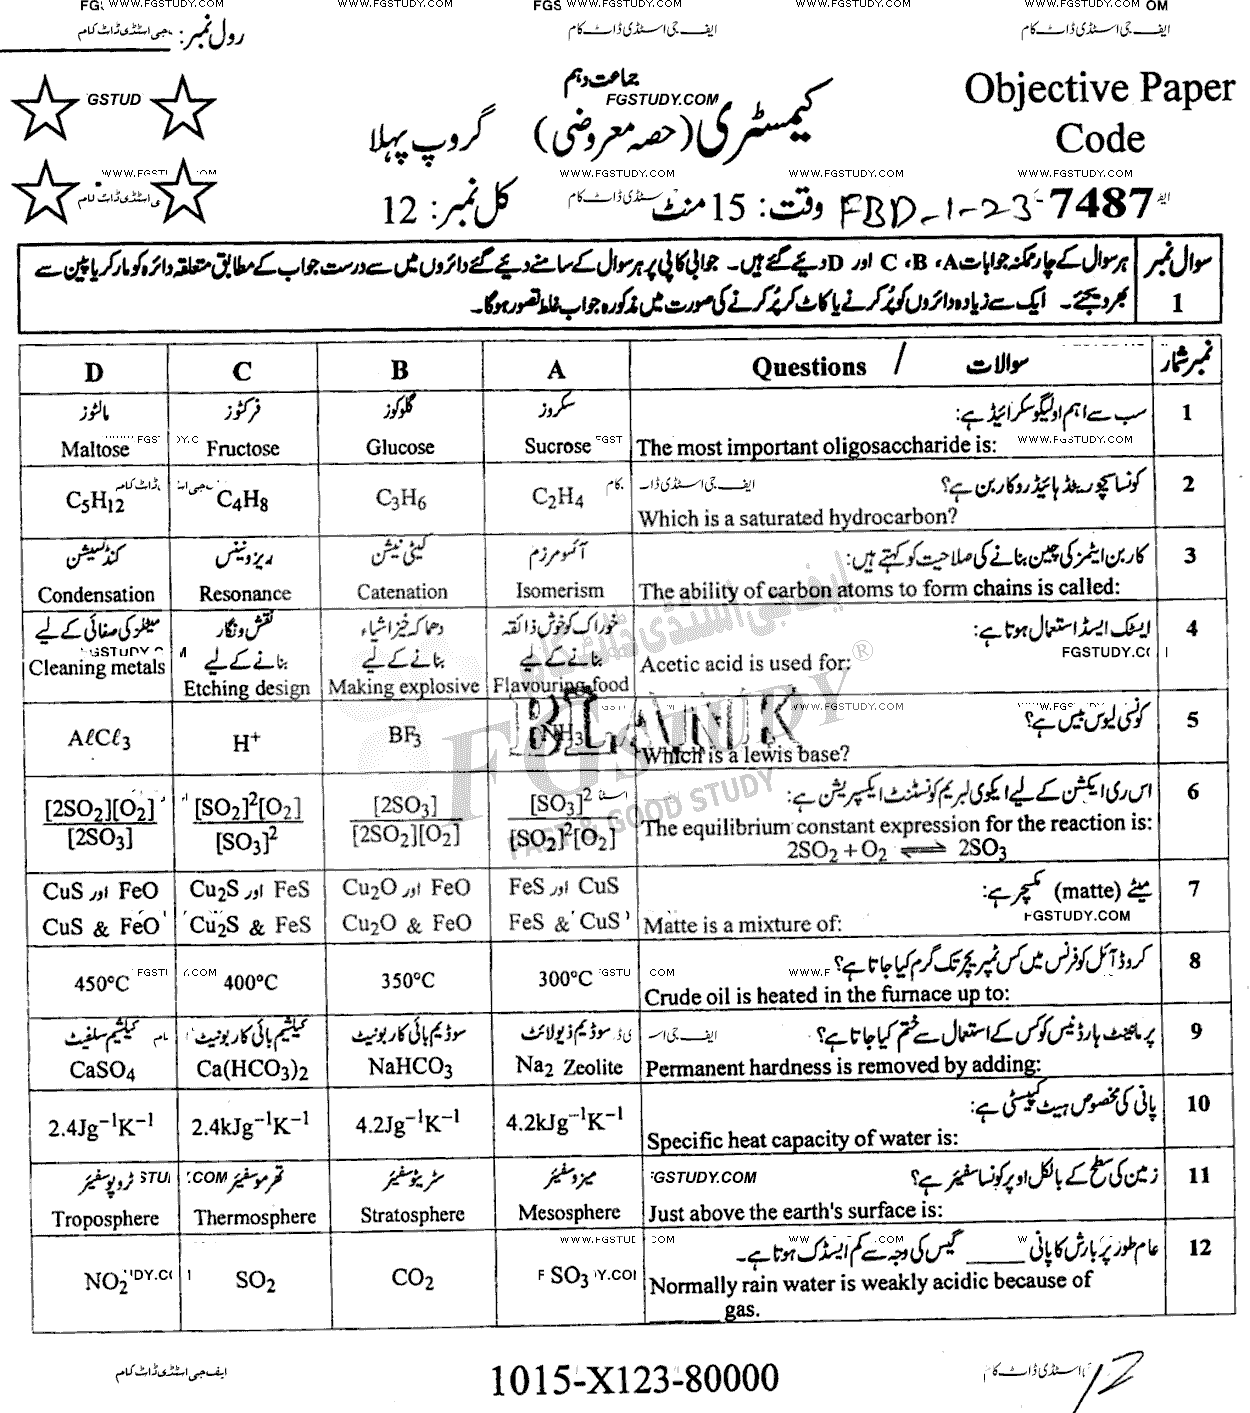 WWW.FGSTUDY.COM WWW.FGSTUDY.COM WWW.FGSTUDY.COM
ایف جی اسٹڈی ڈاٹ کام ایف جی اسٹڈی ڈاٹ کام
رول نمبر:
جماعت دہم
GSTUD
FGSTUDY.COM
Objective Paper
Code
کیمسٹری (حصہ معروضی) گروپ پہلا
WWW.FGSTUDY.COM WWW.FGSTUDY.COM
7487 FBD-1-23 وقت: 15 منٹ کل نمبر: 12
سوال نمبر 1
ہر سوال کے چار ممکنہ جوابات A، B، C اور D دیئے گئے ہیں۔ جوابی کاپی پر ہر سوال کے سامنے دیئے گئے دائروں میں سے درست جواب کے مطابق متعلقہ دائرہ کو مارکر یا پین سے
بھر دیجئے۔ ایک سے زیادہ دائروں کو پُر کرنے یا کاٹ کر پُر کرنے کی صورت میں مذکورہ جواب غلط تصور ہوگا۔
D C B A Questions / سوالات نمبر شمار
مالٹوز فرکٹوز گلوکوز سکروز سب سے اہم اولیگوسکرائیڈ ہے: 1
Maltose Fructose Glucose Sucrose The most important oligosaccharide is: WWW.FGSTUDY.COM
کونسا سچوریٹڈ ہائیڈروکاربن ہے؟ 2
C5H12 C4H8 C3H6 C2H4 Which is a saturated hydrocarbon?
کنڈنسیشن ریزونینس کیٹی نیشن آئسومرزم کاربن ایٹمز کی چین بنانے کی صلاحیت کو کہتے ہیں: 3
Condensation Resonance Catenation Isomerism The ability of carbon atoms to form chains is called:
میٹلز کی صفائی کے لیے نقش و نگار دھماکہ خیز اشیاء خوراک کو خوش ذائقہ ایسٹک ایسڈ استعمال ہوتا ہے: 4
بنانے کے لیے بنانے کے لیے بنانے کے لیے FGSTUDY.CO
Cleaning metals Etching design Making explosive Flavouring food Acetic acid is used for:
BLANK
FGSTUDY ®
FAST & GOOD STUDY
کونسی لیوس بیس ہے؟ 5
AℓCℓ3 H+ BF3 NH3 Which is a lewis base?
اس ری ایکشن کے لیے ایکوی لبریم کونسٹنٹ ایکسپریشن ہے: 6
[2SO2][O2] [SO2]2[O2] [2SO3] [SO3]2 The equilibrium constant expression for the reaction is:
[2SO3] [SO3]2 [2SO2][O2] [SO2]2[O2] 2SO2 + O2 ⇌ 2SO3
CuS اور FeO Cu2S اور FeS Cu2O اور FeO FeS اور CuS میٹے (matte) مکسچر ہے: 7
CuS & FeO Cu2S & FeS Cu2O & FeO FeS & CuS Matte is a mixture of: FGSTUDY.COM
کروڈ آئل کو فرنس میں کس ٹمپریچر تک گرم کیا جاتا ہے؟ 8
450°C 400°C 350°C 300°C Crude oil is heated in the furnace up to:
کیلشیم سلفیٹ کیلشیم بائی کاربونیٹ سوڈیم بائی کاربونیٹ سوڈیم زیولائٹ پرماننٹ ہارڈنیس کو کس کے استعمال سے ختم کیا جاتا ہے؟ 9
CaSO4 Ca(HCO3)2 NaHCO3 Na2 Zeolite Permanent hardness is removed by adding:
پانی کی مخصوص ہیٹ کپیسٹی ہے: 10
2.4Jg−1K−1 2.4kJg−1K−1 4.2Jg−1K−1 4.2kJg−1K−1 Specific heat capacity of water is:
ٹروپوسفیئر تھرموسفیئر سٹریٹوسفیئر میزوسفیئر زمین کی سطح کے بالکل اوپر کونسا سفیئر ہے؟ 11
Troposphere Thermosphere Stratosphere Mesosphere Just above the earth's surface is:
عام طور پر بارش کا پانی ______ گیس کی وجہ سے کم ایسڈک ہوتا ہے۔ 12
NO2 SO2 CO2 SO3 Normally rain water is weakly acidic because of
______ gas.
ایف جی اسٹڈی ڈاٹ کام 1015-X123-80000 اسٹڈی ڈاٹ کام 12